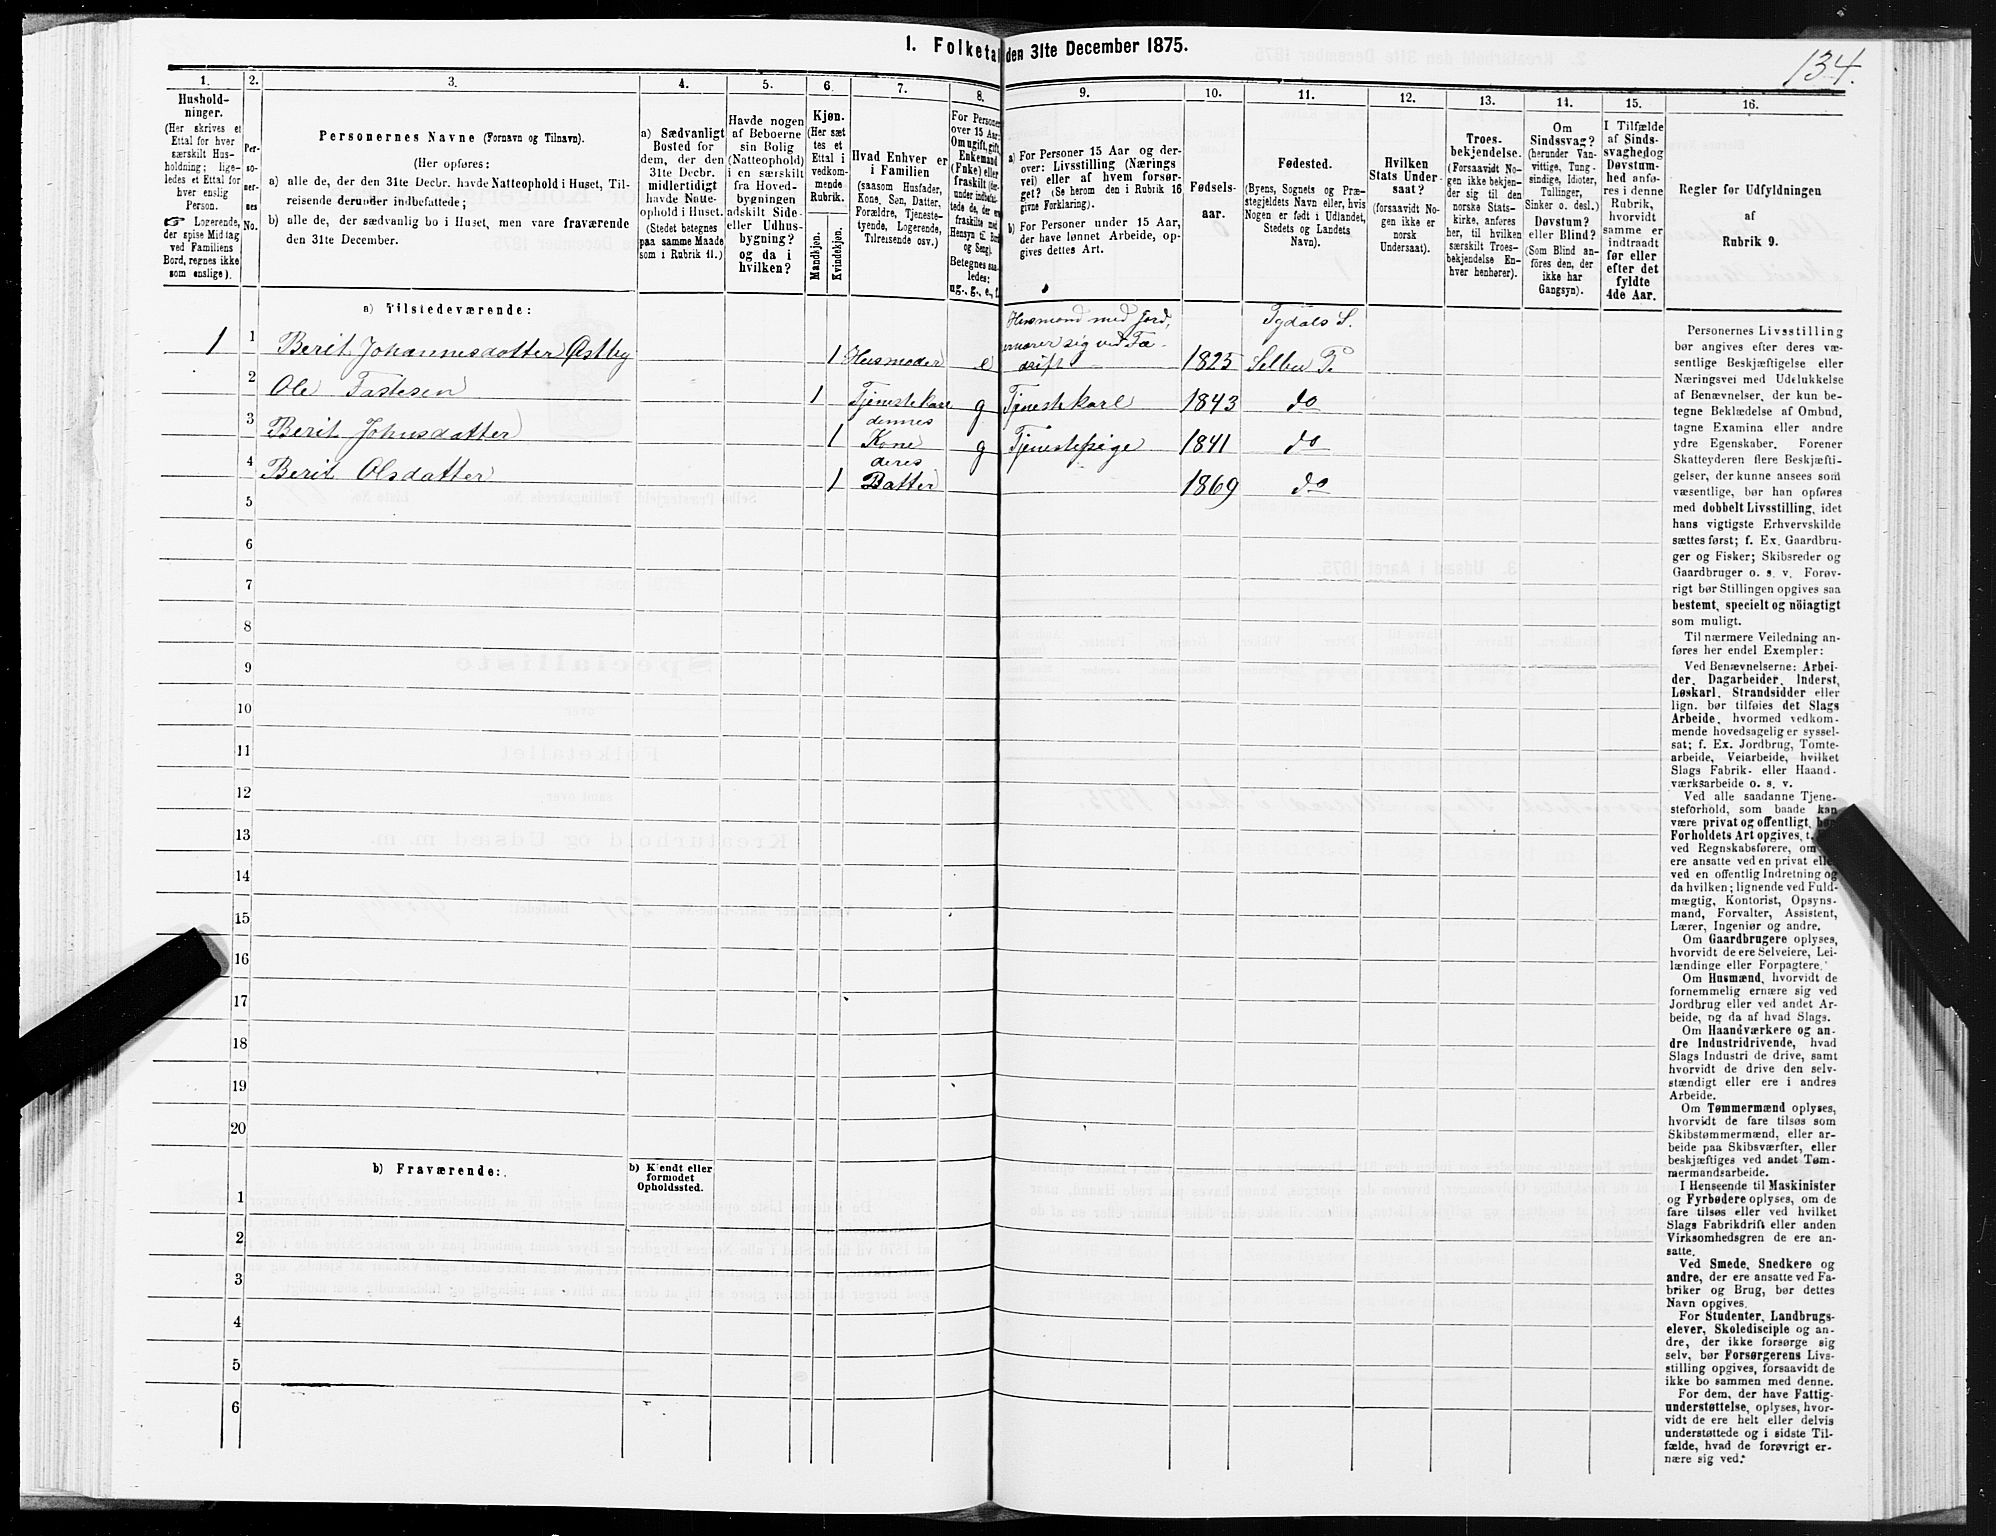 1. Folketal den 31te December 1875.
134.
1.
2.
3.
4.
5.
6.
7.
8.
9.
10.
11.
12.
13.
14.
15.
16.
Hushold-
ninger.
(Her skrives et
Ettal for hver
særskilt Hus-
holdning; lige-
ledes et Ettal for
hver enslig
Person.
Logerende,
der spise Middag
ved Familiens
Bord, regnes ikke
som enslige).
Per-
so-
ner-
nes
No.
Personernes Navne (Fornavn og Tilnavn).
(Her opføres:
a) alle de, der den 31te Decbr. havde Natteophold i Huset, Til-
reisende derunder indbefattede;
b) alle de, der sædvanlig bo i Huset, men vare fraværende
den 31te December.
a) Sædvanligt
Bosted for
dem, der den
31te Decbr.
midlertidigt
havde Natte-
ophold i Huset.
(Stedet betegnes
paa samme Maade
som i Rubrik 11.)
Havde nogen
af Beboerne
sin Bolig
(Natteophold)
i en særskilt
fra Hoved-
bygningen
adskilt Side-
eller Udhus-
bygning?
og da i
hvilken?
Kjøn.
(Her sæt
tes et
Ettal i
vedkom-
mende
Rubrik.
Mandkjøn.
Kvindekjøn.
Hvad Enhver er
i Familien
(saasom Husfader,
Kone, Søn, Datter,
Forældre, Tjeneste-
tyende, Logerende,
Tilreisende osv.)
For Personer
over 15 Aar:
Om ugift, gift,
Enkemand
(Enke) eller
fraskilt (der-
under indbefat-
tede de, der ere
fraskilte med
Hensyn til Bord
og Seng).
Betegnes saa-
ledes:
ug., g., e., f.
a) For Personer 15 Aar og der-
over: Livsstilling (Nærings
vei) eller af hvem forsør-
get? (Se herom den i Rubrik 16
givne Forklaring).
b) For Personer under 15 Aar,
der have lønnet Arbeide, op-
gives dettes Art.
Fødsels-
aar.
Fødested.
(Byens, Sognets og Præ-
stegjeldets Navn eller, hvis
Nogen er født i Udlandet,
Stedets og Landets
Navn).
Hvilken
Stats Under-
saat?
(forsaavidt No-
gen ikke er
norsk
Undersaat).
Troes-
bekjendelse.
(Forsaavidt No-
gen ikke bekjen-
der sig til den
norske Stats-
kirke, anføres
her, til hvilken
særskilt Troes-
bekjendelse En-
hver henhører).
Om
Sindssvag?
(herunder Van-
vittige, Tung-
sindige, Idioter,
Tullinger,
Sinker o. desl.)
Døvstum?
eller Blind?
(Som Blind an-
føres den, der
ikke har
Gangsyn).
I Tilfælde
af Sinds-
svaghed og
Døvstum-
hed anfø-
res i denne
Rubrik,
hvorvidt
samme er
indtraadt
før eller
efter det
fyldte
4de Aar.
Regler for Udfyldningen
af
Rubrik 9.
a) Tilstedeværende:
Husmand med Jord, Tydals S.
ernærer sig ved Fæ-
1 1 Berit Johannesdatter Østby 1 Husmoder e drift 1825 Selbu P.
2 Ole Fastesen 1 Tjenestekarl g Tjenestekarl 1843 do
dennes
3 Berit Johnsdatter 1 Kone g Tjenestepige 1841 do
deres
4 Berit Olsdatter 1 Datter 1869 do
5
6
7
8
9
10
11
12
13
14
15
16
17
18
19
20
b) Fraværende:
b) Kjendt eller
formodet
Opholdssted.
1
2
3
4
5
6
Personernes Livsstilling
bør angives efter deres væ-
sentlige Beskjæftigelse eller
Næringsvei med Udelukkelse
af Benævnelser, der kun be-
tegne Beklædelse af Ombud,
tagne Examina eller andre
ydre Egenskaber. Forener
Skatteyderen flere Beskjæfti-
gelser, der kunne ansees som
væsentlige, bør han opføres
med dobbelt Livsstilling, idet
hans vigtigste Erhvervskilde
sættes først; f. Ex. Gaardbru-
ger og Fisker; Skibsreder og
Gaardbruger o. s. v. Forøv-
rigt bør Stillingen opgives saa
bestemt, specielt og nöiagtigt
som muligt.
Til nærmere Veiledning an-
føres her endel Exempler:
Ved Benævnelserne: Arbei-
der, Dagarbeider, Inderst,
Løskarl, Strandsidder eller
lign. bør tilføies det Slags
Arbeide, hvormed vedkom-
mende hovedsagelig er syssel-
sat; f. Ex. Jordbrug, Tomte-
arbeide, Veiarbeide, hvilket
Slags Fabrik- eller Haand-
værksarbeide o. s. v.
Ved alle saadanne Tjene-
steforhold, som baade kan
være privat og offentligt, bør
Forholdets Art opgives, t.
ved Regnskabsførere, om
ere ansatte ved en privat eller
ved en offentlig Indretning og
da hvilken; lignende ved Fuld-
mægtig, Kontorist, Opsyns-
mand, Forvalter, Assistent,
Lærer, Ingeniør og andre.
Om Gaardbrugere oplyses,
hvorvidt de ere Selveiere, Lei-
lændinge eller Forpagtere.
Om Husmænd, hvorvidt de
fornemmelig ernære sig ved
Jordbrug eller ved andet Ar-
beide, og da af hvad Slags.
Om Haandværkere og an-
dre Industridrivende, hvad
Slags Industri de drive, samt
hvorvidt de drive den selv-
stændigt eller ere i andres
Arbeide.
Om Tømmermænd oplyses,
hvorvidt de fare tilsøs som
Skibstømmermænd, eller ar-
beide paa Skibsværfter, eller
beskjæftiges ved andet Tøm-
mermandsarbeide.
I Henseende til Maskinister
og Fyrbødere oplyses, om de
fare tilsøs eller ved hvilket
Slags Fabrikdrift eller anden
Virksomhedsgren de ere an-
satte.
Ved Smede, Snedkere og
andre, der ere ansatte ved Fa-
briker og Brug, bør dettes
Navn opgives.
For Studenter, Landbrugs-
elever, Skoledisciple og an-
dre, der ikke forsørge sig
selv, bør Forsørgerens Livs-
stilling opgives, forsaavidt de
ikke bo sammen med denne.
For dem, der have Fattig-
understøttelse, oplyses, hvor-
vidt de ere helt eller delvis
understøttede og i sidste Til-
fælde, hvad de forøvrigt er-
nære sig ved.